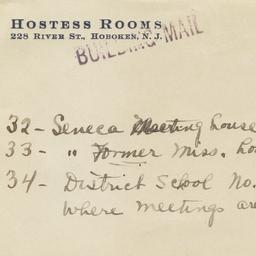 HOSTESS ROOMS
228 RIVER ST., HOBOKEN, N. J.
BUILDING MAIL
32- Seneca Meeting house
33- " Former Miss. ho
34- District School No.
Where meetings are